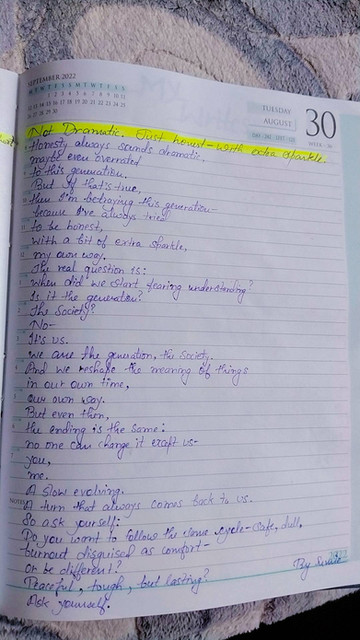 SEPTEMBER 2022
M T W T F S S M T W T F S S
TUESDAY
AUGUST
30
Not Dramatic. Just honest - with extra sparkle
Honesty always sounds dramatic.
maybe even overrated
To this generation.
But if that's true,
then I'm betraying this generation-
because I've always tried
to be honest,
with a bit of extra sparkle,
my own way.
The real question is:
when did we start fearing understanding?
Is it the generation?
The Society?
No-
It's us.
we are the generation, the society.
And we reshape the meaning of things
in our own time,
our own way.
But even then,
the ending is the same:
no one can change it except us-
you,
me.
A slow evolving.
NOTES
A turn that always comes back to us.
So ask yourself:
Do you want to follow the same cycle-safe, dull,
burnout disguised as comfort-
or be different?
Peaceful, tough, but lasting?
Ask yourself.
By